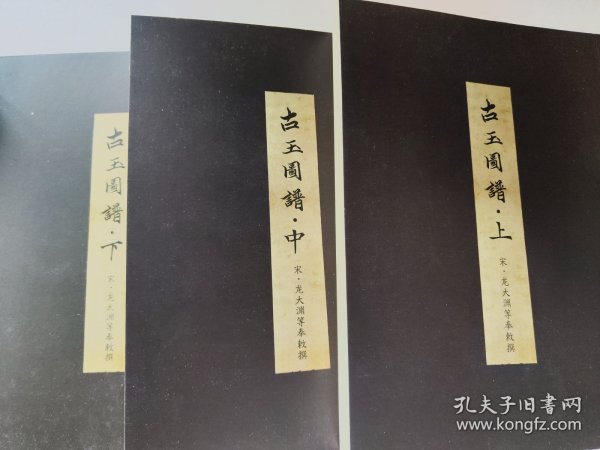 古玉圖譜·上
宋·龙大渊等奉敕撰
古玉圖譜·中
宋·龙大渊等奉敕撰
古玉圖譜·下
宋·龙大渊等奉敕撰
孔夫子旧书网
www.kongfz.com